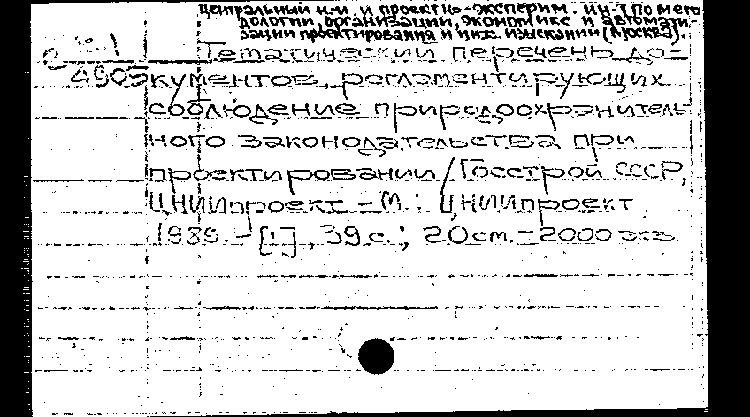 Центральный н.-и. и проектно-эксперим. ин-т по мето
дологии, организации, экономике и автомати-
зации проектирования и инж. изысканий (Москва).
Тематический перечень до-
4905 кументов, регламентирующих
соблюдение природоохранитель
ного законодательства при
проектировании / Госстрой СССР,
ЦНИИпроект. - М.: ЦНИИпроект
1989. - [1], 39 с.; 20 см. - 2000 экз